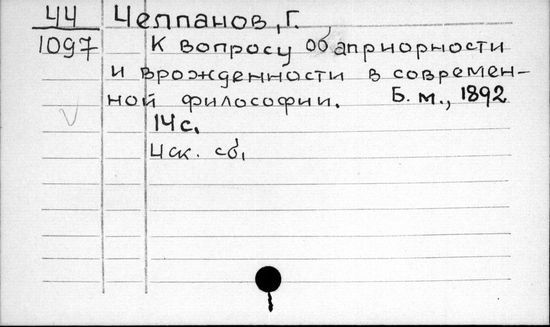 44
1097
Челпанов, Г.
К вопросу об априорности
и врожденности в современ-
ной философии. Б. м., 1892
14 с.
Иск. сб,